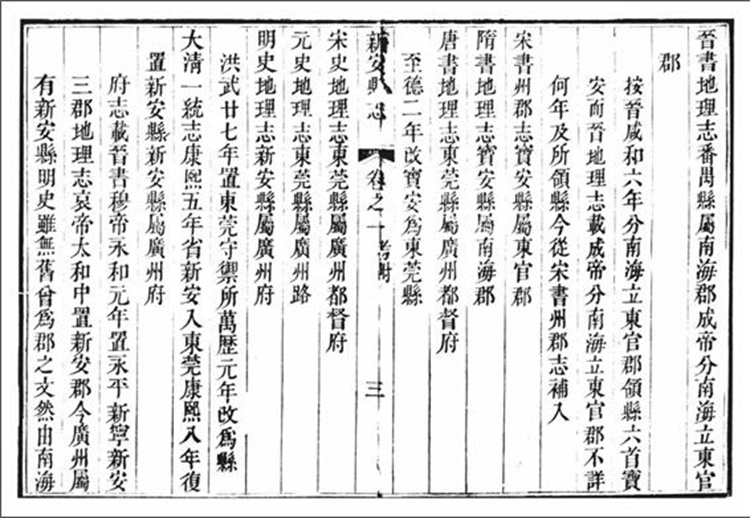 晉書地理志番禺縣屬南海郡成帝分南海立東官
郡
按晉咸和六年分南海立東官郡領縣六首寶
安而晉地理志載成帝分南海立東官郡不詳
何年及所領縣今從宋書州郡志補入
宋書州郡志寶安縣屬東官郡
隋書地理志寶安縣屬南海郡
唐書地理志東莞縣屬廣州都督府
至德二年改寶安爲東莞縣
新安縣志 卷之一 三
宋史地理志東莞縣屬廣州都督府
元史地理志東莞縣屬廣州路
明史地理志新安縣屬廣州府
洪武廿七年置東莞守禦所萬歷元年改爲縣
大清一統志康熙五年省新安入東莞康熙八年復
置新安縣新安縣屬廣州府
府志載晉書穆帝永和元年置永平新寧新安
三郡地理志哀帝太和中置新安郡今廣州屬
有新安縣明史雖無舊曾爲郡之文然由南海